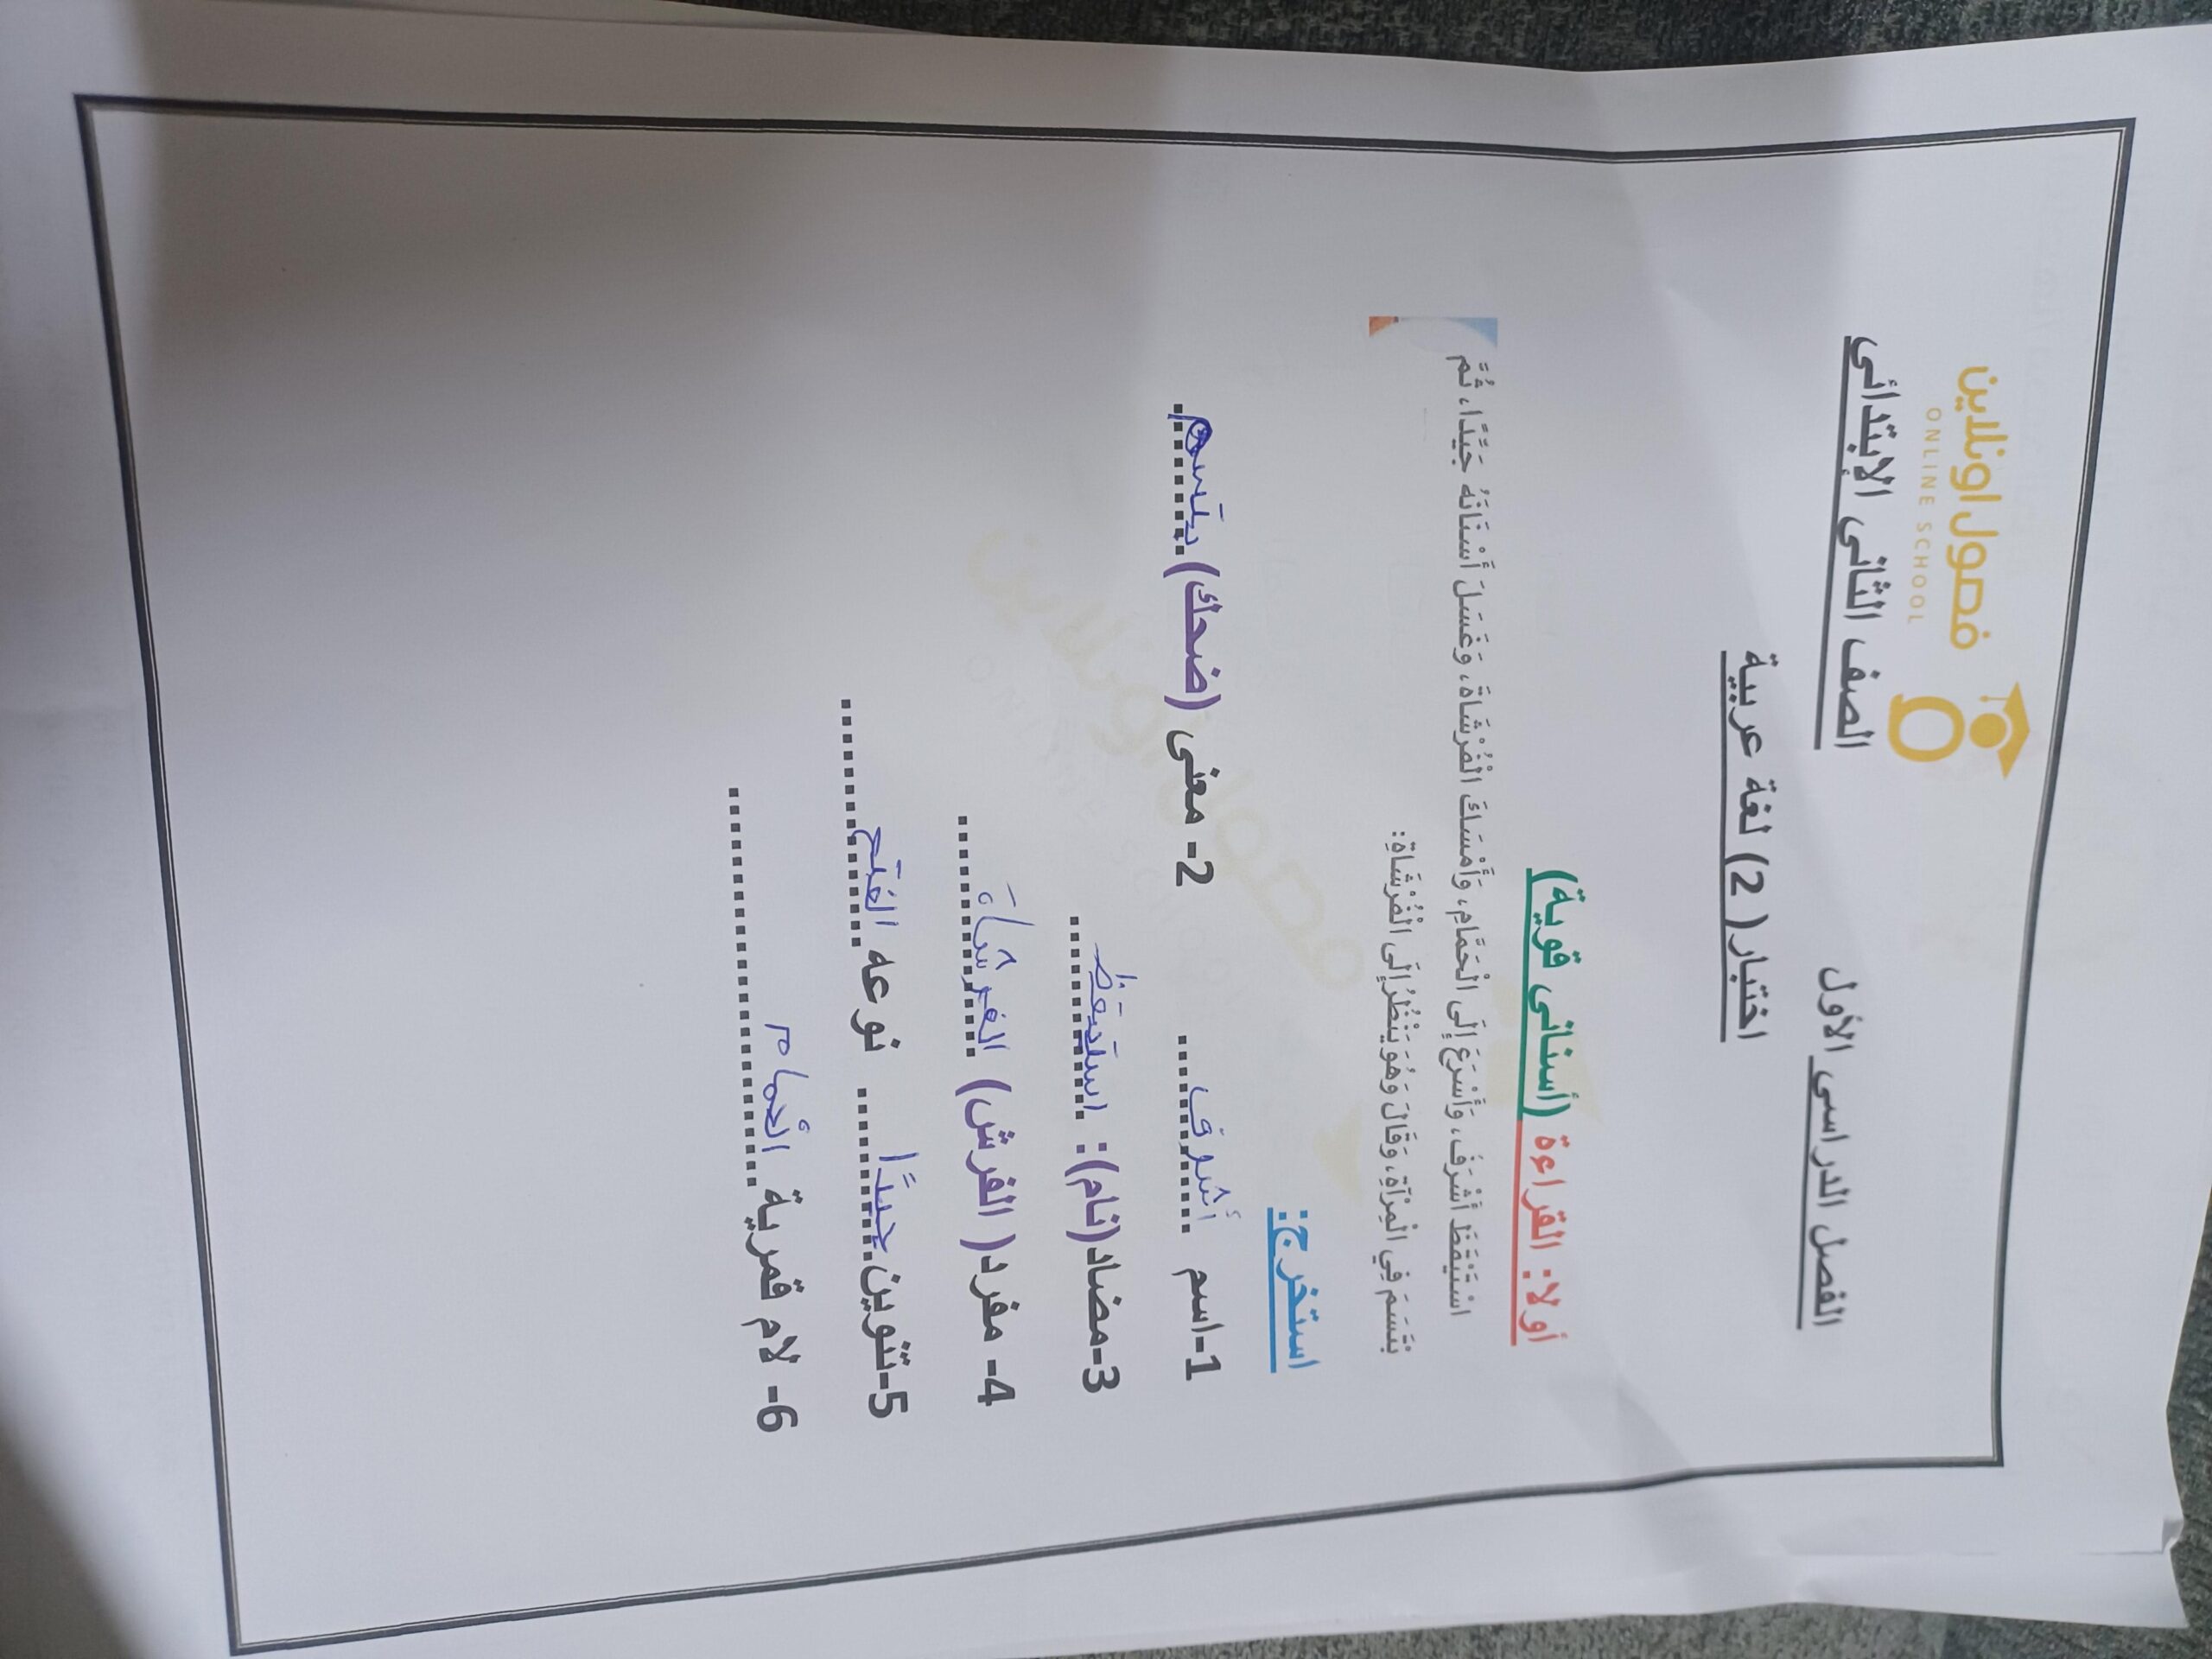 فصول اونلاين
ONLINE SCHOOL
الصف الثانى الإبتدائى الفصل الدراسى الأول
اختبار( 2) لغة عربية
أولا: القراءة (أسنانى قوية)
اسْتَيْقَظَ أَشْرَفُ، وَأَسْرَعَ إِلَى الْحَمَّامِ، وَأَمْسَكَ الْفُرْشَاةَ، وَغَسَلَ أَسْنَانَهُ جَيِّدًا، ثُمَّ
ابْتَسَمَ فِي الْمِرْآةِ، وَقَالَ وَهُوَ يَنْظُرُ إِلَى الْفُرْشَاةِ:
استخرج:
1-اسم أشرف 2- معنى (ضحك) يبتسم
3-مضاد(نام): استيقظ
4- مفرد( الفرش) الفرشاة
5-تنوين جيدًا نوعه الفتح
6- لام قمرية الْحمام
فصول اونلاين